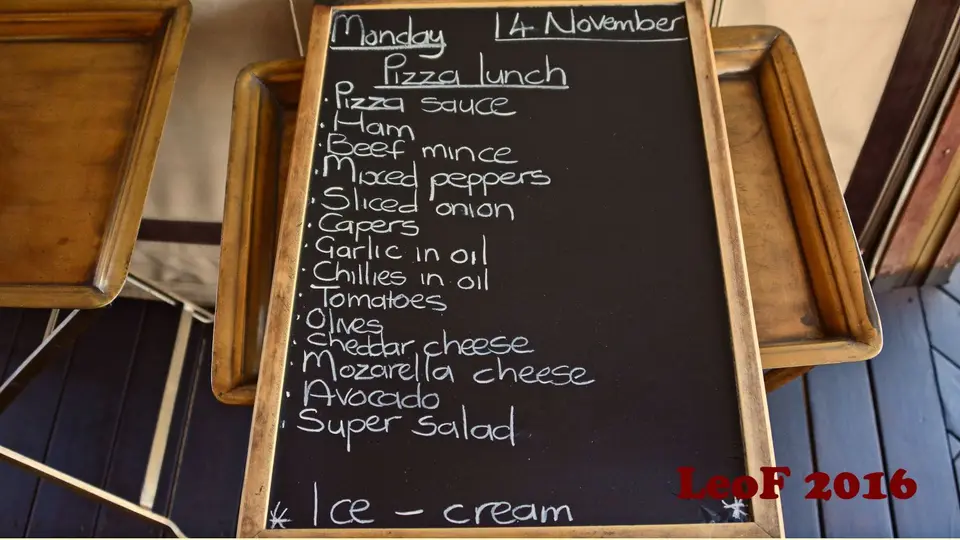 Monday 14 November
Pizza lunch
· Pizza sauce
· Ham
· Beef mince
· Mixed peppers
· Sliced onion
· Capers
· Garlic in oil
· Chillies in oil
· Tomatoes
· Olives
· Cheddar cheese
· Mozarella cheese
· Avocado
· Super salad
* Ice - cream *
LeoF 2016